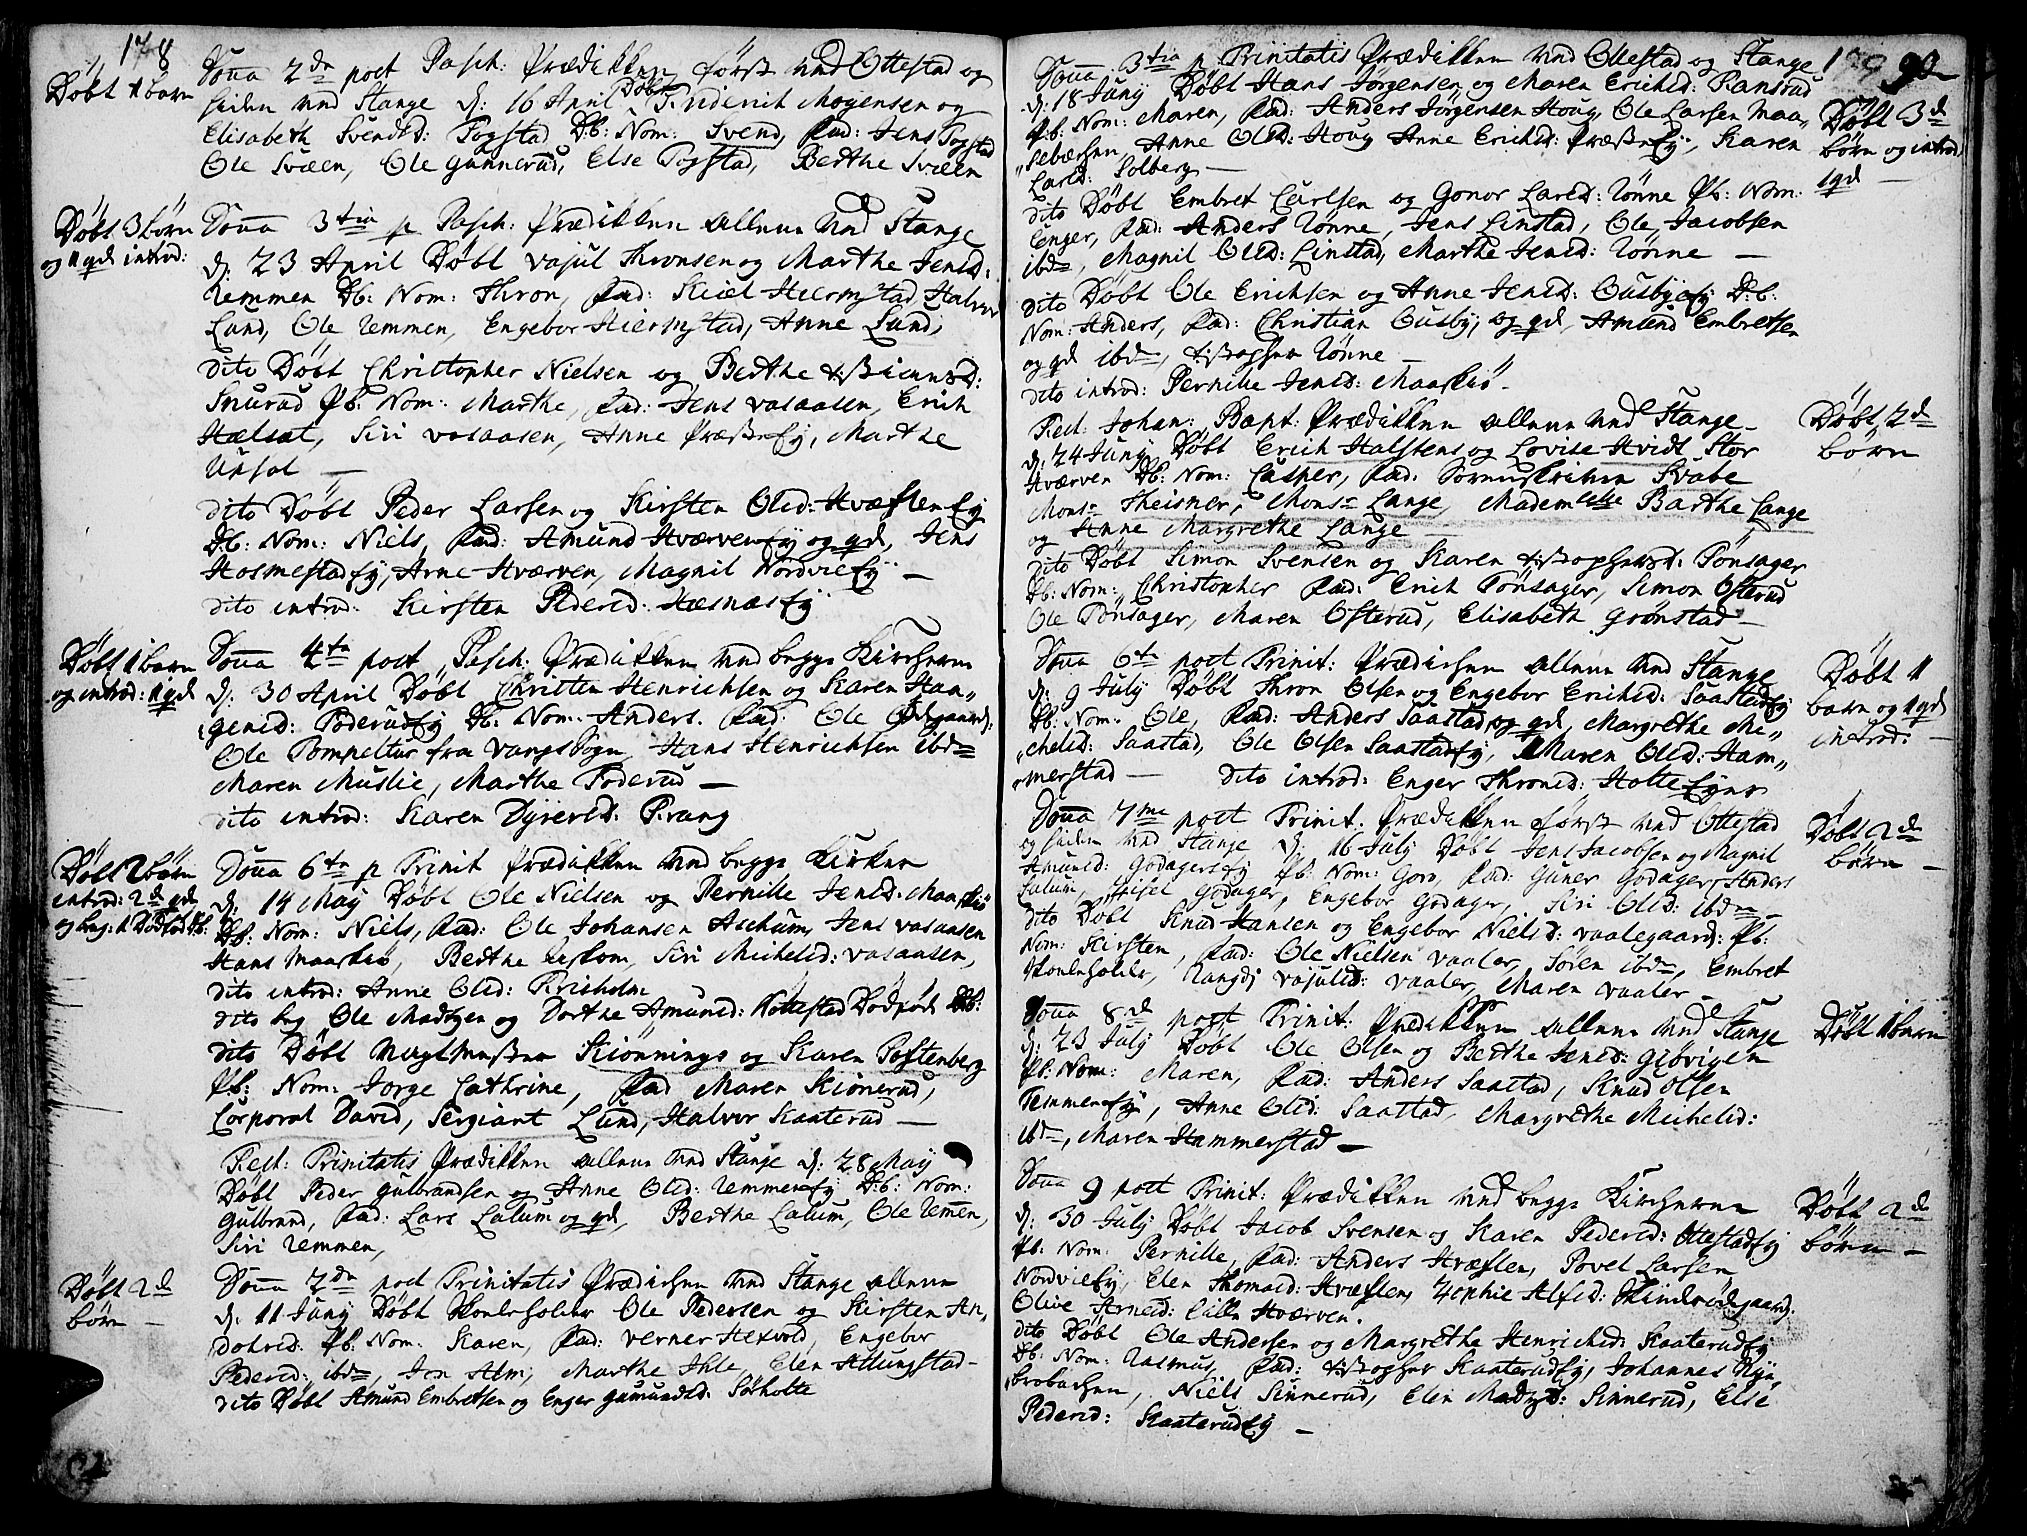 178
Døbt 1 barn
Dom̄a 2da post Pasch: Prædikken først ved Ottestad og
siden ved Stange d: 16 April Døbt Friderich Mogensen og
Elisabeth Svensd: Fogstad Db: Nom: Svend, Fad: Jens Fogstad
Ole Svæen, Ole Gunnerud, Else Fogstad, Berthe Svæen
Døbt 3 børn
og 1 qd introd:
Dom̄a 3tia p Pasch: Prædikken allene ved Stange
d: 23 April Døbt Vasul Thronsen og Marthe Jensd:
Remmen Db: Nom: Thron, Fad: Kield Hiermstad, Halvor
Lund, Ole Remmen, Engebor Hiermstad, Anne Lund,
dito Døbt Christopher Nielsen og Berthe
Snurud Pb: Nom: Marthe, Fad: Jens Vasaasen, Erich
Hælsæt, Siri Vasaasen, Anne Præstey, Marthe
Ursal —
dito Døbt Peder Larsen og Kirsten Olsd: Hvæflen Ey
Db: Nom: Niels, Fad: Amund Hværven Ey og qd, Jens
Hosmestad Ey, Arne Hværven, Magnil Nordvie Ey —
dito introd: Kirsten Pedersd: Hæsnæs Ey
Døbt 1 barn
og introd: 1 qd
Dom̄a 4ta post Pasch: Prædikken ved begge Kircherne
d: 30 April Døbt Christen Henrichsen og Karen Haa„
gensd: Foderud Ey Db: Nom: Anders. Fad: Ole Ødegaard,
Ole Pompeltur fra Vangs Sogn, Hans Henrichsen ibd
Maren Muslie, Marthe Foderud —
dito introd: Karen Dyresd: Frang
Døbt 2 børn
introd: 2de qd
og beg: 1 Dødfød Db:
Dom̄a 6ta p Trinit Prædikken ved begge Kirker
d: 14 May Døbt Ole Nielsen og Pernille Jensd: Maaskiø
Db: Nom: Niels, Fad: Ole Johansen Aschum, Jens Vasaasen
Hans Maaskiø, Berthe Leskom, Siri Michelsd: Vasaasen,
dito introd: Anne Olsd: Friisholm
dito beg Ole Madtzen og Dorthe Amunsd: Hottestad Dødfød Db:
dito Døbt Kiønnings og Karen Postenberg
Pb: Nom: Jorge Cathrine, Fad Maren Skiønerud,
Corporal David, Sergiant Lund, Halvor Skaaterud —
Fest: Trinitatis Prædikken allene ved Stange d: 28 May
Døbt Peder Gulbrandsen og Anne Olsd: Remmen Ey Db: Nom:
Gulbrand, Fad: Lars Lalum og qd, Berthe Lalum, Ole Rem̄en,
Siri Remmen,
Døbt 2de
børn —
Dom̄a 2da post Trinitatis Prædichen ved Stange allene
d: 11 Juny Døbt Skoleholder Ole Pedersen og Kirsten An„
dorsd: Pb: Nom: Karen, Fad: Verner Hexvold, Engebor
Pedersd: ibd, Jen Alm, Marthe Ihle, Elen Atlungstad —
dito Døbt Amund Embretsen og Enger Gumundsd: Sørholte
179 90
Døbt 3de
børn og introd:
1 qd —
Dom̄a 3tia p Trinitatis Prædikken ved Ottestad og Stange
d: 18 Juny Døbt Hans Jørgensen og Maren Erichsd: Ransrud
Pb: Nom: Maren, Fad: Anders Jørgensen Houg, Ole Larsen Maa„
sebæchen, Anne Olsd: Houg Anne Erichsd: Præstey, Karen
Larsd: Solberg —
dito Døbt Embret Carlsen og Gonor Larsd: Rønne Pb: Nom:
Enger, Fad: Anders Rønne, Jens Linstad, Ole Jacobsen
ibd, Magnil Olsd: Linstad, Marthe Jensd: Rønne —
dito Døbt Ole Erichsen og Anne Jensd: Gusby Ey Db:
Nom: Anders, Fad: Christian Gusby, og qd, Amund Embretsen
og qd ibd, Rønne —
dito introd: Pernille Jensd: Maaskiø —
Døbt, 2de
børn
Fest. Johan: Bapt: Prædikken allene ved Stange —
d: 24 Juny Døbt Erich Halstens og Lovise Hvidt Stor
Hværven Db: Nom: Casper, Fad: Sorenskriver Svabe
Mons: Theisner, Mons: Lange, Mademoiselle Barthe Lange
og Anne Margrethe Lange —
dito Døbt Simon Svensen og Karen Tønsager
Db: Nom: Christopher Fad: Erich Tønsager, Simon Ofterud
Ole Tønsager, Maren Ofterud, Elisabeth Grønstad —
Døbt 1
barn og 1 qd
introd: —
Dom̄a 6ta post Trinit: Prædichen allene ved Stange
d: 9 July Døbt Thron Olsen og Engebor Erichsd: Saastad Ey
Db: Nom: Ole, Fad: Anders Saastad og qd, Margrethe Mi„
chelsd: Saastad, Ole Olsen Saastad Ey, Maren Olsd: Ham„
merstad — dito introd: Enger Thronsd: Holte Eyer
Døbt 2de
børn —
Dom̄a 7me post Trinit: Prædikken først ved Ottestad
og siden ved Stange d: 16 July Døbt Jens Jacobsen og Magnil
Amunsd: Godagers Ey Pb: Nom: Goro, Fad: Guner Godager, Anders
Lalum, Sisel Godager, Engebor Godager, Siri Olsd: ibd —
dito Døbt Knud Hansen og Engebor Nielsd: Vaalegaard: Pb:
Nom: Kirsten, Fad: Ole Nielsen Vaaler, Søren ibd, Embret
Skoleholder, Rangdj Vasulsd: Vaaler, Maren Vaaler —
Døbt 1 barn
Dom̄a 8de post Trinit: Prædikken allene ved Stange
d: 23 July Døbt Ole Olsen og Berthe Jensd: Giøvigen
Pb: Nom: Maren, Fad: Anders Saastad, Knud Olsen
Femmen Ey, Anne Olsd: Saastad, Margrethe Michelsd:
ibd, Maren Hammerstad —
Døbt 2de
børn —
Dom̄a 9 post Trinit: Prædikken ved begge Kircherne
d: 30 July Døbt Jacob Svensen og Karen Pedersd: Ottestad Ey
Pb: Nom: Pernille, Fad: Anders Hvæflen, Povel Larsen
Nordvie Ey, Elen Thomasd: Hvæflen, Zophie Alfsd:
Olive Arnesd: Lille Hværven.
dito Døbt Ole Andersen og Margrethe Henrichsd: Skaaterud Ey
Db: Nom: Rasmus, Fad: Skaaterud Ey, Johannes Ny„
brobachen, Niels Sinnerud, Elen Madtzd: Sinnerud, Else
Pedersd: Skaaterud Ey —